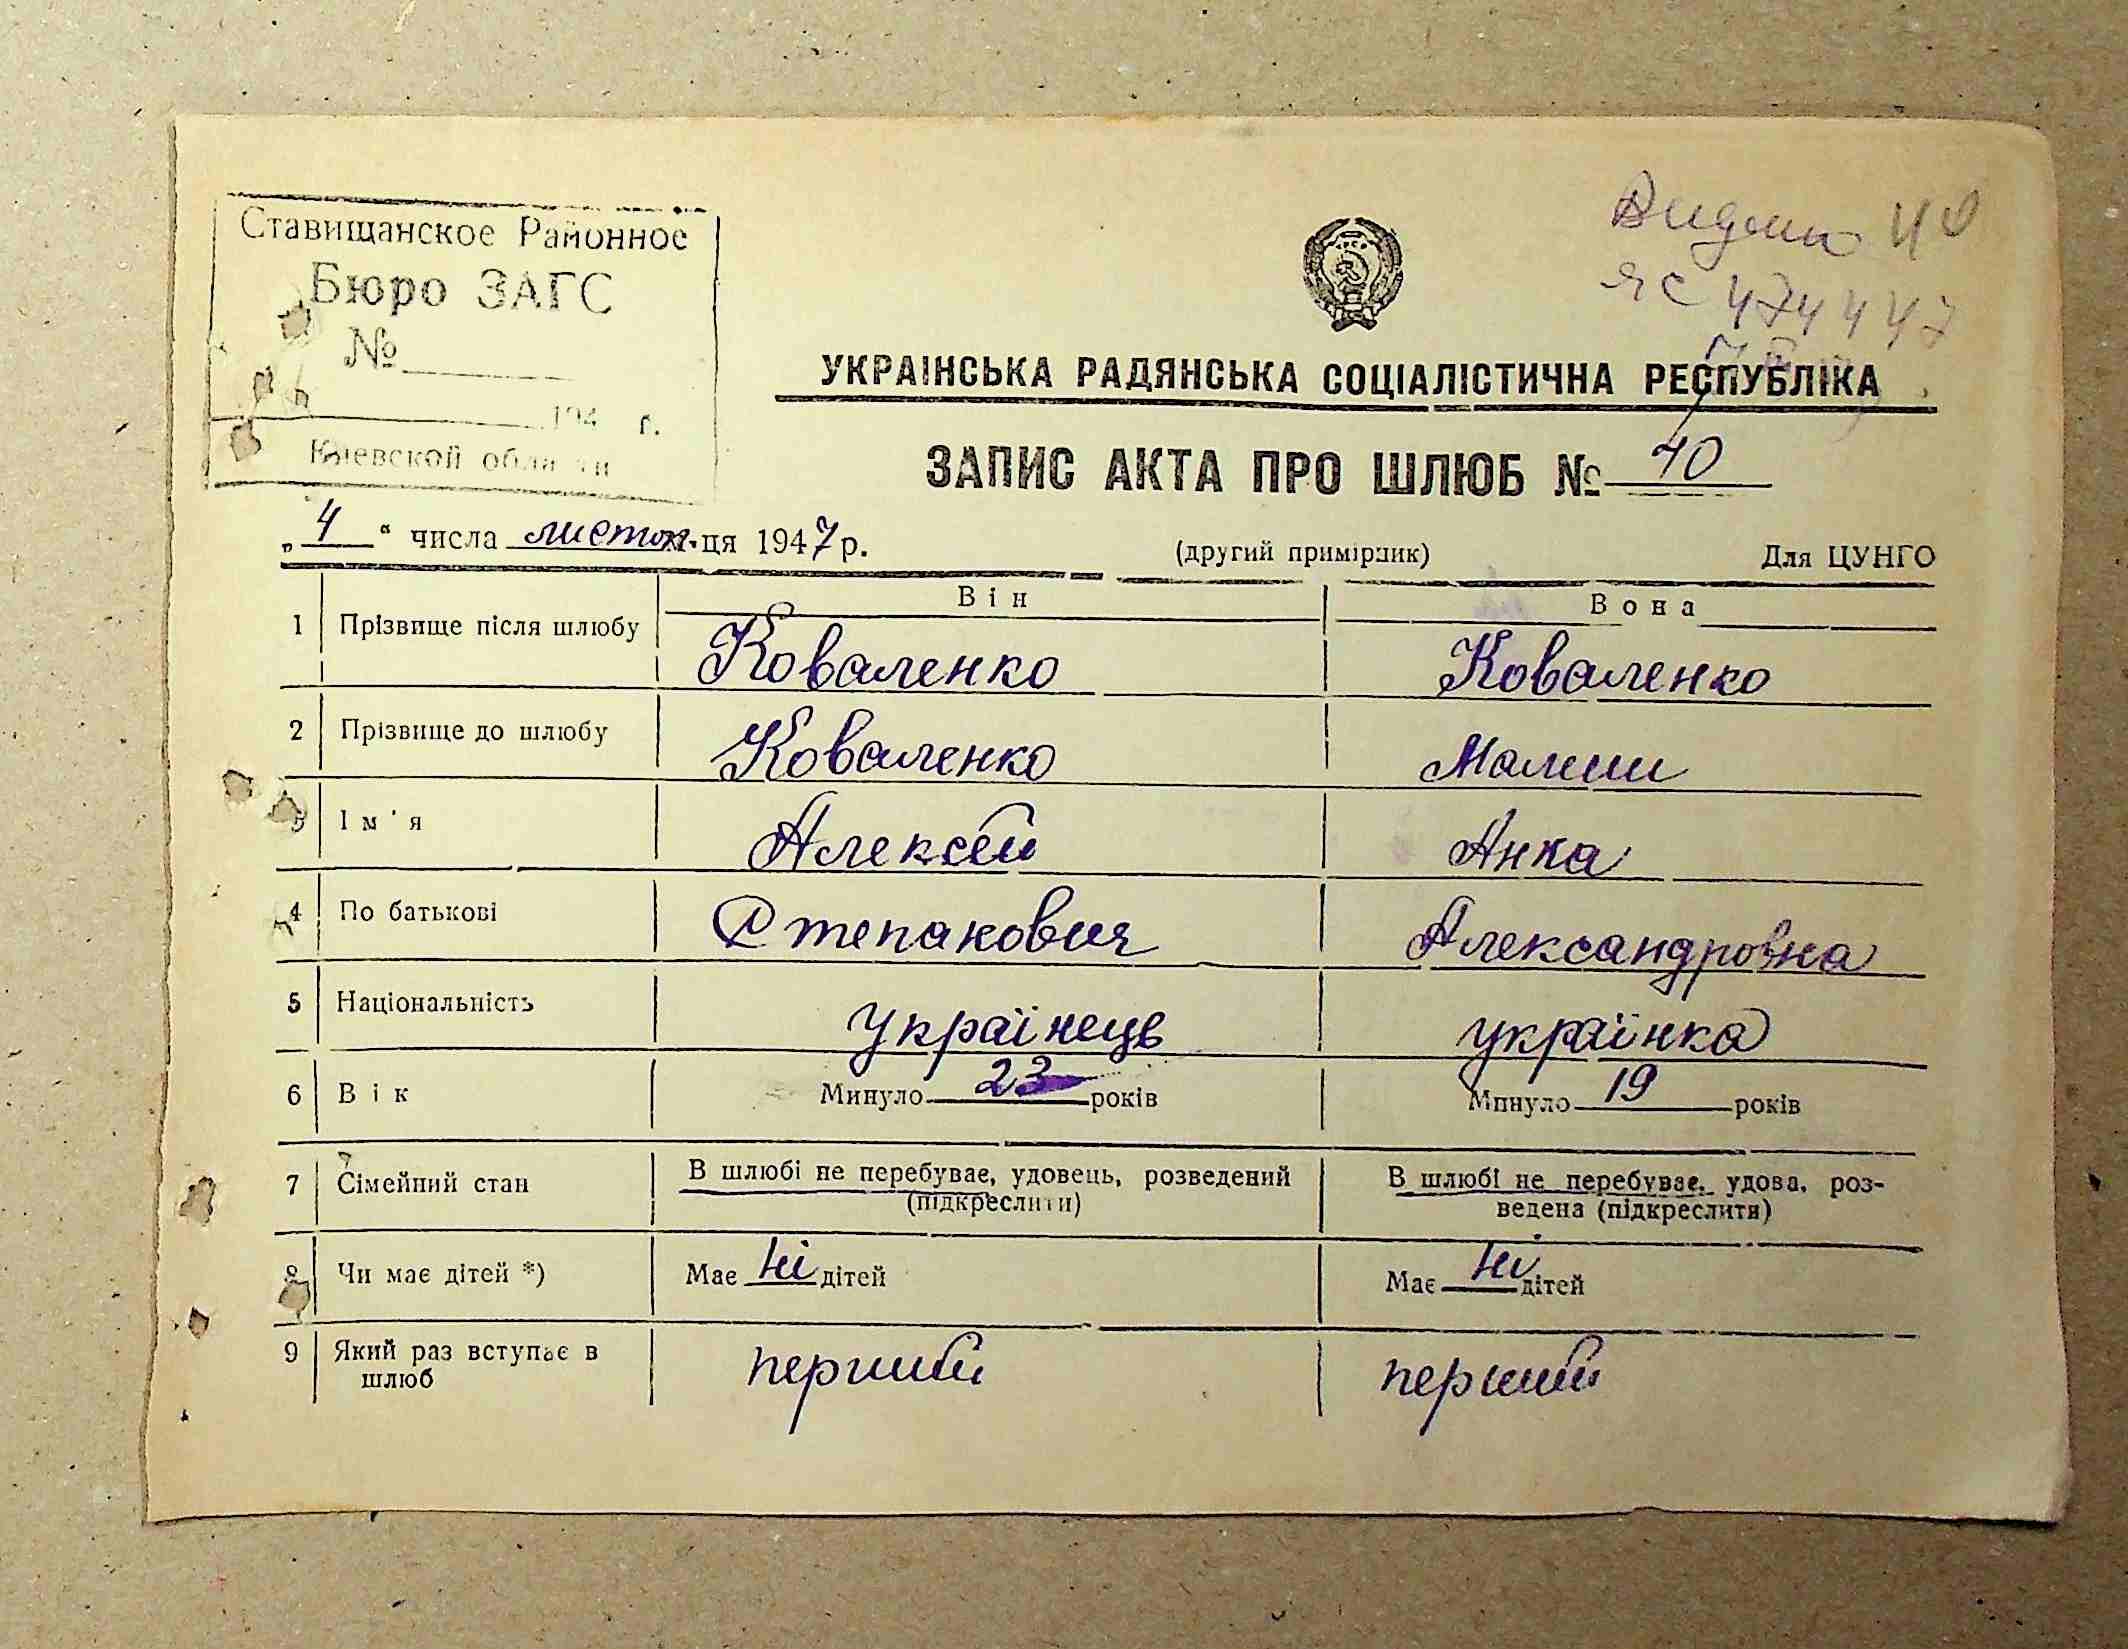 Ставищанское Районное
Бюро ЗАГС
№
194 г.
Киевской области
Видано
ЯС 474447
УКРАІНСЬКА РАДЯНСЬКА СОЦІАЛІСТИЧНА РЕСПУБЛІКА
ЗАПИС АКТА ПРО ШЛЮБ № 70
„4“ числа листоп.ця 1947 р. (другий примірник) Для ЦУНГО
Він Вона
1 Прізвище після шлюбу Коваленко Коваленко
2 Прізвище до шлюбу Коваленко
3 Ім'я Алексей Анна
4 По батькові Степанович Александровна
5 Національність Українець українка
6 Вік Минуло 23 років Минуло 19 років
7 Сімейний стан В шлюбі не перебуває, удовець, розведений В шлюбі не перебуває, удова, роз-
(підкреслити) ведена (підкреслити)
8 Чи має дітей *) Має Ні дітей Має Ні дітей
9 Який раз вступає в перший перший
шлюб